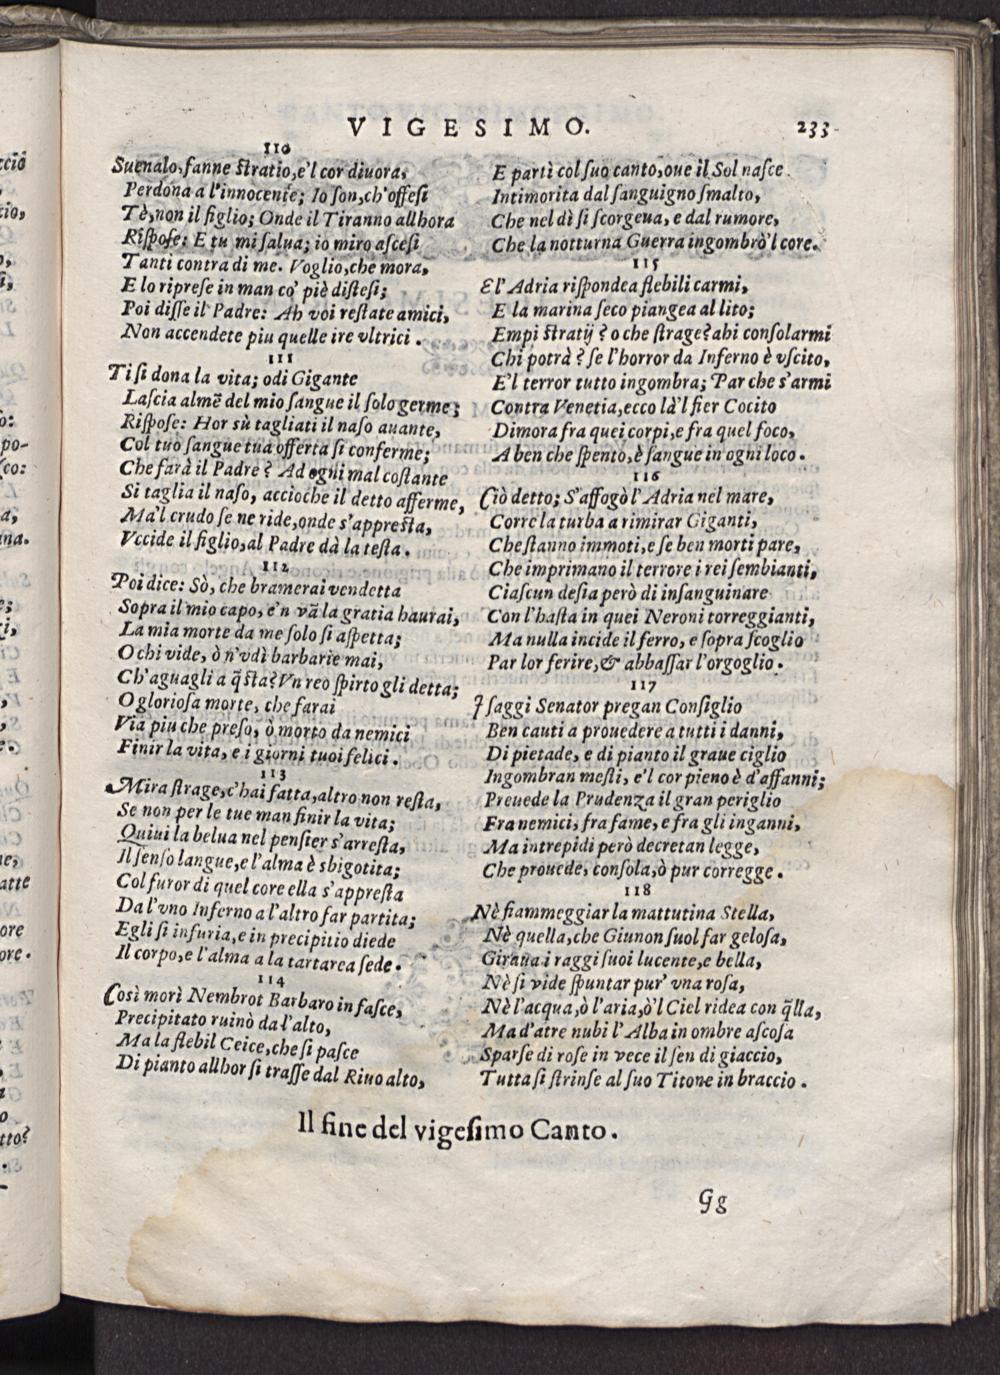 VIGESIMO. 233
110
Suenalo, fanne ſtratio, e'l cor diuora,
Perdona a l'innocente; Io ſon, ch'offeſi
Tè, non il figlio; Onde il Tiranno allhora
Riſpoſe: E tu mi ſalua; io miro aſceſi
Tanti contra di me. Voglio, che mora,
E lo ripreſe in man co' piè diſteſi;
Poi diſſe il Padre: Ah voi reſtate amici,
Non accendete piu quelle ire vltrici.
111
Ti ſi dona la vita; odi Gigante
Laſcia almē del mio ſangue il ſolo germe;
Riſpoſe: Hor sù tagliati il naſo auante,
Col tuo ſangue tua offerta ſi conferme;
Che farà il Padre? Ad ogni mal coſtante
Si taglia il naſo, accioche il detto afferme,
Ma'l crudo ſe ne ride, onde s'appreſta,
Vccide il figlio, al Padre dà la teſta.
112
Poi dice: Sò, che bramerai vendetta
Sopra il mio capo, e'n vā la gratia haurai,
La mia morte da me ſolo ſi aſpetta;
O chi vide, ò n'vdì barbarie mai,
Ch'aguagli a q̄ſta? Vn reo ſpirto gli detta;
O glorioſa morte, che farai
Via piu che preſo, ò morto da nemici
Finir la vita, e i giorni tuoi felici.
113
Mira ſtrage, c'hai fatta, altro non reſta,
Se non per le tue man finir la vita;
Quiui la belua nel penſier s'arreſta,
Il ſenſo langue, e l'alma è sbigotita;
Col furor di quel core ella s'appreſta
Da l'vno Inferno a l'altro far partita;
Egli ſi infuria, e in precipitio diede
Il corpo, e l'alma a la tartarea ſede.
114
Così morì Nembrot Barbaro in faſce,
Precipitato ruinò da l'alto,
Ma la flebil Ceice, che ſi paſce
Di pianto allhor ſi traſſe dal Riuo alto,
E partì col ſuo canto, oue il Sol naſce
Intimorita dal ſanguigno ſmalto,
Che nel dì ſi ſcorgeua, e dal rumore,
Che la notturna Guerra ingombrò'l core.
115
E l'Adria riſpondea flebili carmi,
E la marina ſeco piangea al lito;
Empi ſtratij? o che ſtrage? ahi conſolarmi
Chi potrà? ſe l'horror da Inferno è vſcito,
E'l terror tutto ingombra; Par che s'armi
Contra Venetia, ecco là'l fier Cocito
Dimora fra quei corpi, e fra quel foco,
A ben che ſpento, è ſangue in ogni loco.
116
Ciò detto; S'affogò l'Adria nel mare,
Corre la turba a rimirar Giganti,
Che ſtanno immoti, e ſe ben morti pare,
Che imprimano il terrore i rei ſembianti,
Ciaſcun deſia però di inſanguinare
Con l'haſta in quei Neroni torreggianti,
Ma nulla incide il ferro, e ſopra ſcoglio
Par lor ferire, & abbaſſar l'orgoglio.
117
I ſaggi Senator pregan Conſiglio
Ben cauti a prouedere a tutti i danni,
Di pietade, e di pianto il graue ciglio
Ingombran meſti, e'l cor pieno è d'affanni;
Preuede la Prudenza il gran periglio
Fra nemici, fra fame, e fra gli inganni,
Ma intrepidi però decretan legge,
Che prouede, conſola, ò pur corregge.
118
Nè fiammeggiar la mattutina Stella,
Nè quella, che Giunon ſuol far geloſa,
Giraua i raggi ſuoi lucente, e bella,
Nè ſi vide ſpuntar pur' vna roſa,
Nè l'acqua, ò l'aria, ò'l Ciel ridea con q̄lla,
Ma d'atre nubi l'Alba in ombre aſcoſa
Sparſe di roſe in vece il ſen di giaccio,
Tutta ſi ſtrinſe al ſuo Titone in braccio.
Il fine del vigeſimo Canto.
Gg